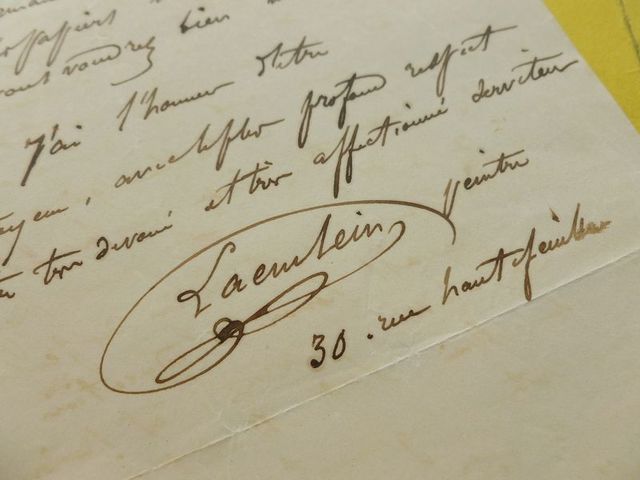 papiers
vous voudrez bien
J'ai l'honneur d'être
avec le plus profond respect
très devoué et très affectionné serviteur
Laemlein peintre
30 . rue hautefeuille